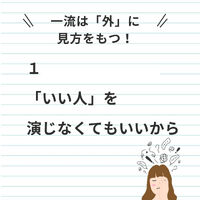 一流は「外」に
見方をもつ！
１
「いい人」を
演じなくてもいいから